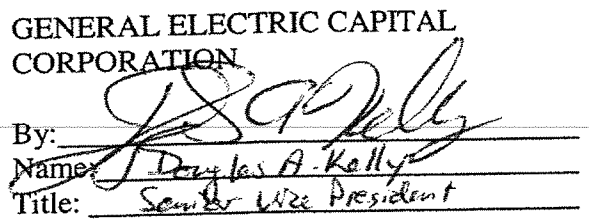 GENERAL ELECTRIC CAPITAL
CORPORATION
By:
Name: Douglas A. Kelly
Title: Senior Vice President